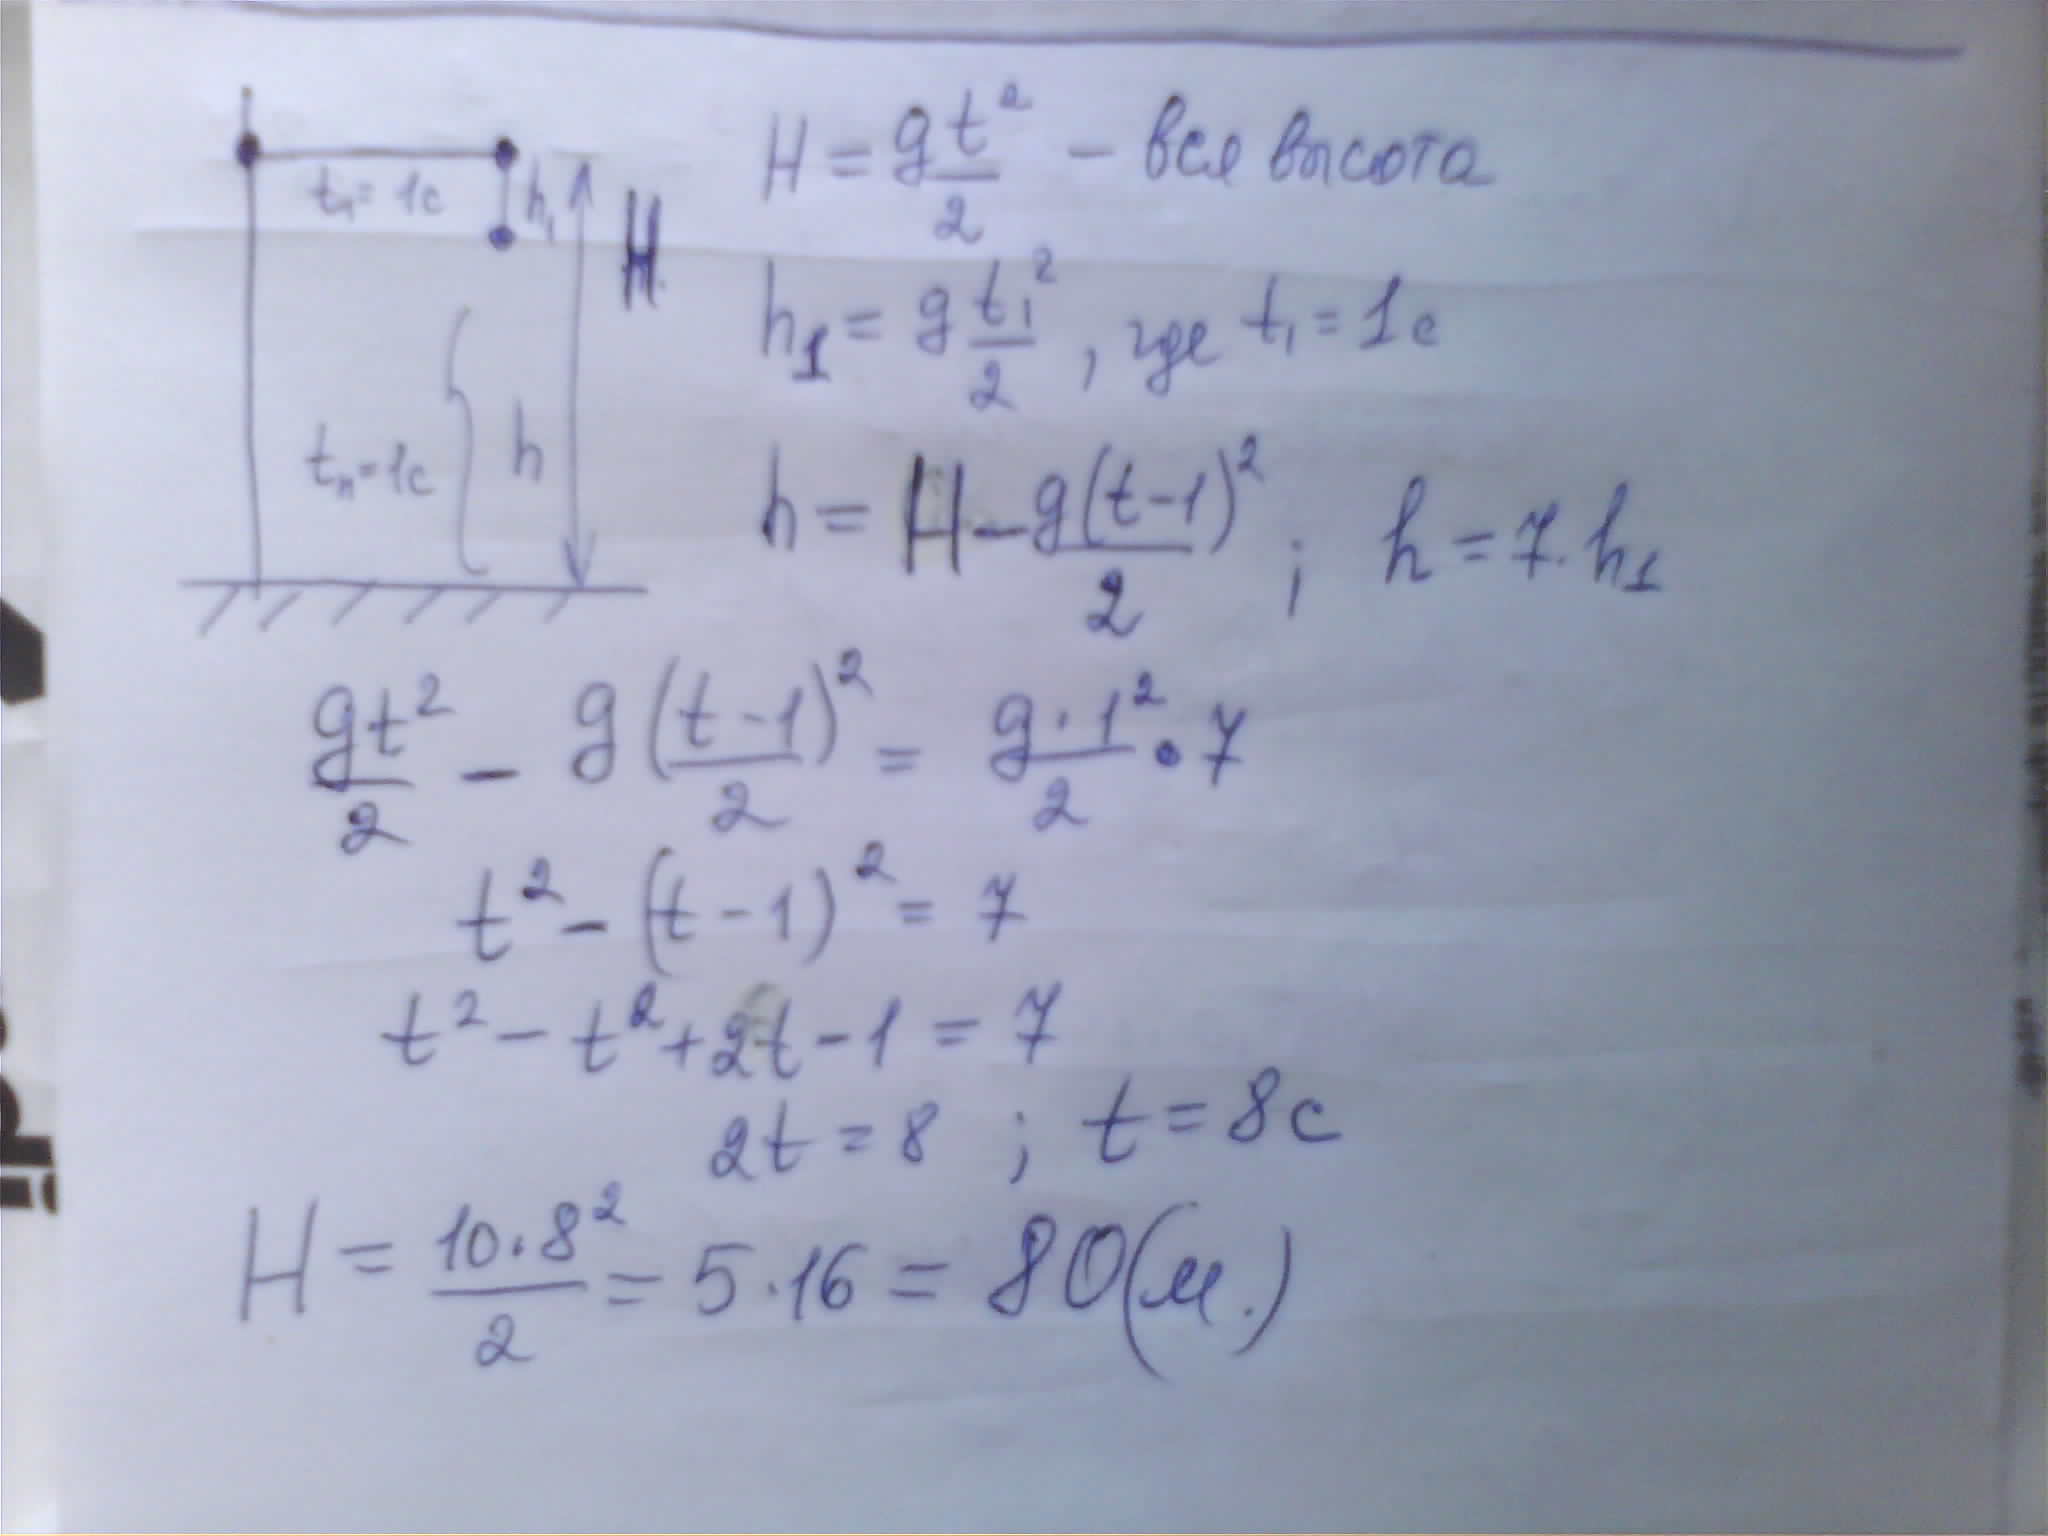 t₁ = 1с
h₁
H
tₙ = 1с
h
H = gt²/2 – вся высота
h₁ = g t₁²/2, где t₁ = 1с
h = H – g(t-1)²/2 ; h = 7·h₁
gt²/2 – g(t-1)²/2 = g·1²/2 · 7
t² – (t-1)² = 7
t² – t² + 2t – 1 = 7
2t = 8 ; t = 8с
H = 10·8²/2 = 5·16 = 80(м.)